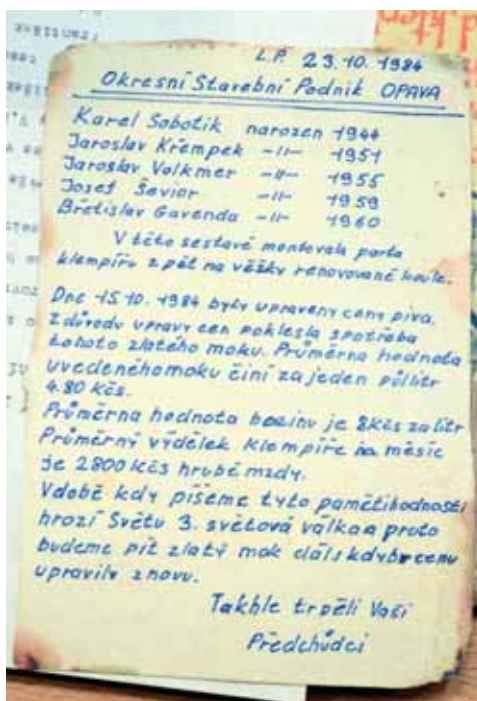 L.P. 23.10.1984
Okresní Stavební Podnik OPAVA
Karel Sobotik narozen 1944
Jaroslav Křempek -11- 1951
Jaroslav Volkmer -11- 1955
Jozef Ševiar -11- 1959
Břetislav Gavenda -11- 1960
V této sestavě montovala parta
klempířů zpět na věžky renovované koule.
Dne 15.10.1984 byly upraveny ceny piva.
Z důvodu upravy cen poklesla spotřeba
tohoto zlatého moku. Průměrna hodnota
uvedeného moku činí za jeden půllitr
4.80 kčs.
Průměrna hodnota bezinu je 8kčs za litr
Průměrný výdělek klempíře na měsíc
je 2800 kčs hrubé mzdy.
V době kdy píšeme tyto pamětihodnosti
hrozí Světu 3. světová válka a proto
budeme pít zlatý mok dál i kdyby cenu
upravily znovu.
Takhle trpěli Vaši
Předchůdci